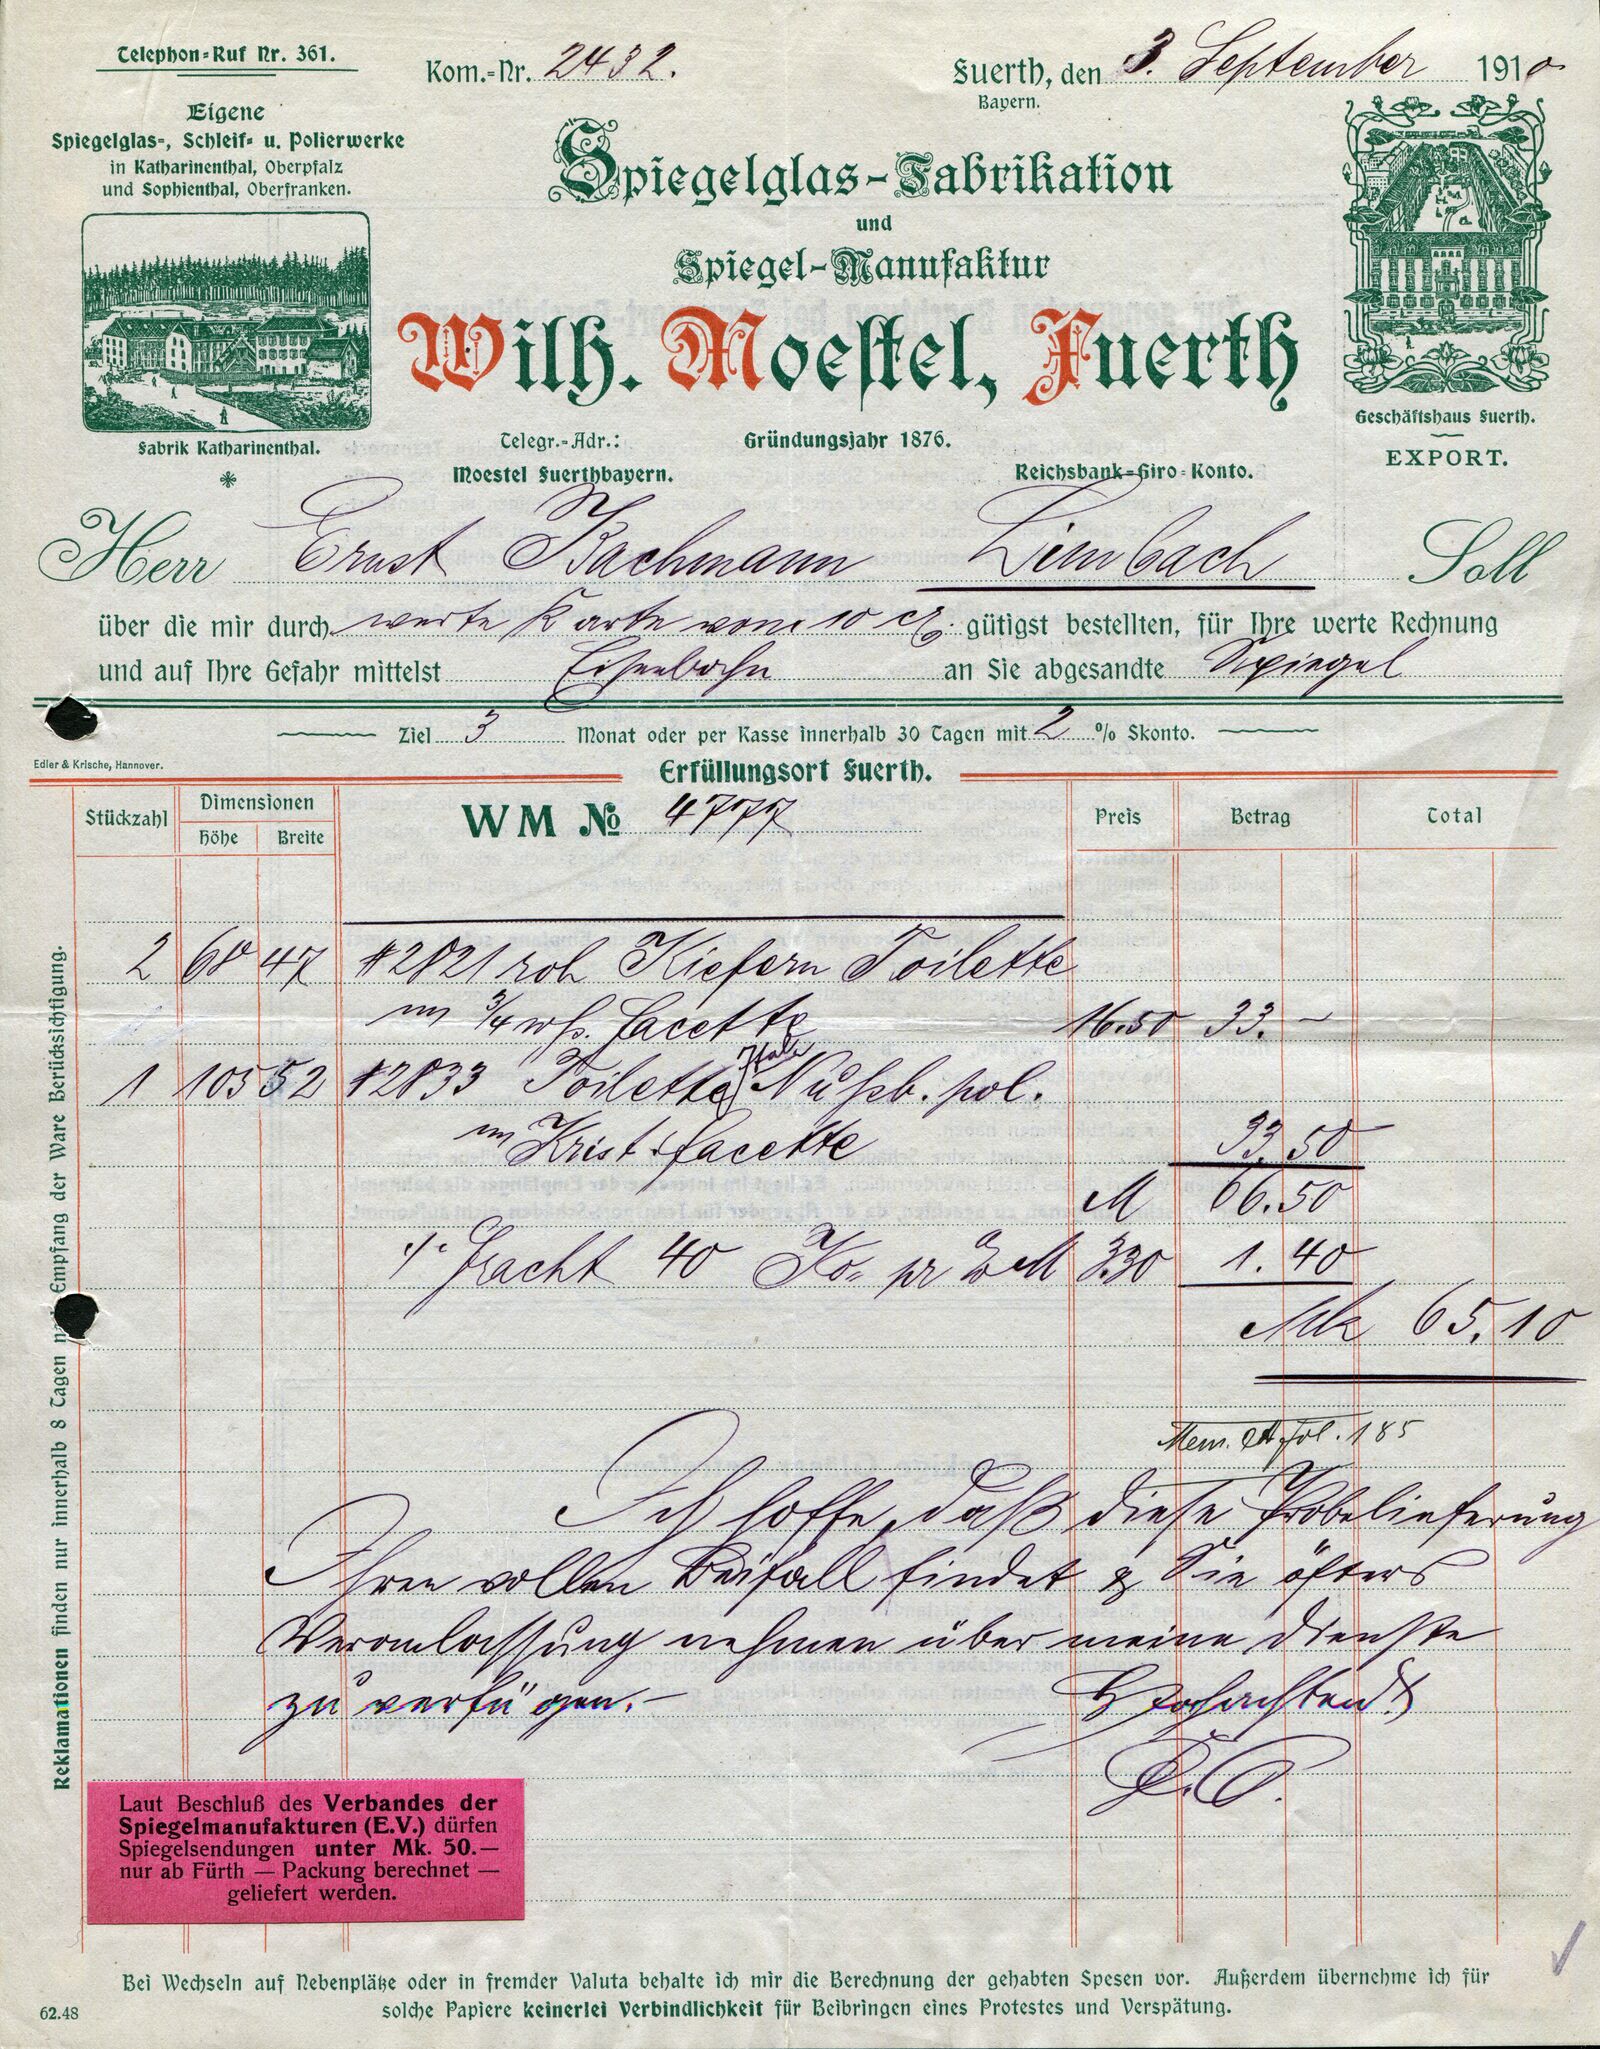 Telephon-Ruf Nr. 361.
Kom.-Nr. 2432.
Fuerth, den 3. September 1910
Bayern.
Eigene
Spiegelglas-, Schleif- u. Polierwerke
in Katharinenthal, Oberpfalz
und Sophienthal, Oberfranken.
Spiegelglas-Fabrikation
und
Spiegel-Manufaktur
Wilh. Moestel, Fuerth
Fabrik Katharinenthal.
Telegr.-Adr.:
Moestel Fuerthbayern.
Gründungsjahr 1876.
Reichsbank-Giro-Konto.
Geschäftshaus Fuerth.
EXPORT.
Herr Ernst Bachmann Limbach Soll
über die mir durch werte Karte vom 10 gütigst bestellten, für Ihre werte Rechnung
und auf Ihre Gefahr mittelst Eisenbahn an Sie abgesandte Spiegel
Ziel 3 Monat oder per Kasse innerhalb 30 Tagen mit 2 % Skonto.
Edler & Krische, Hannover.
Erfüllungsort Fuerth.
Stückzahl Dimensionen Höhe Breite WM No 4777 Preis Betrag Total
2 68 47 #2821 roh Kiefern Toilette
m 3/4 wß. Facette 16.50 33.—
1 105 52 #2833 Toilette Nußb. pol.
m Krist. facette 33.50
M 66.50
./. Fracht 40 Ko= pr % M 3.30 1.40
Mk 65.10
Mem. A fol. 185
Ich hoffe, daß diese Probelieferung
Ihren vollen Beifall findet & Sie öfters
Veranlassung nehmen über meine Dienste
zu verfügen.—
Hochachtend
Reklamationen finden nur innerhalb 8 Tagen Empfang der Ware Berücksichtigung.
Laut Beschluß des Verbandes der
Spiegelmanufakturen (E.V.) dürfen
Spiegelsendungen unter Mk. 50.—
nur ab Fürth — Packung berechnet —
geliefert werden.
Bei Wechseln auf Nebenplätze oder in fremder Valuta behalte ich mir die Berechnung der gehabten Spesen vor. Außerdem übernehme ich für
solche Papiere keinerlei Verbindlichkeit für Beibringen eines Protestes und Verspätung.
62.48